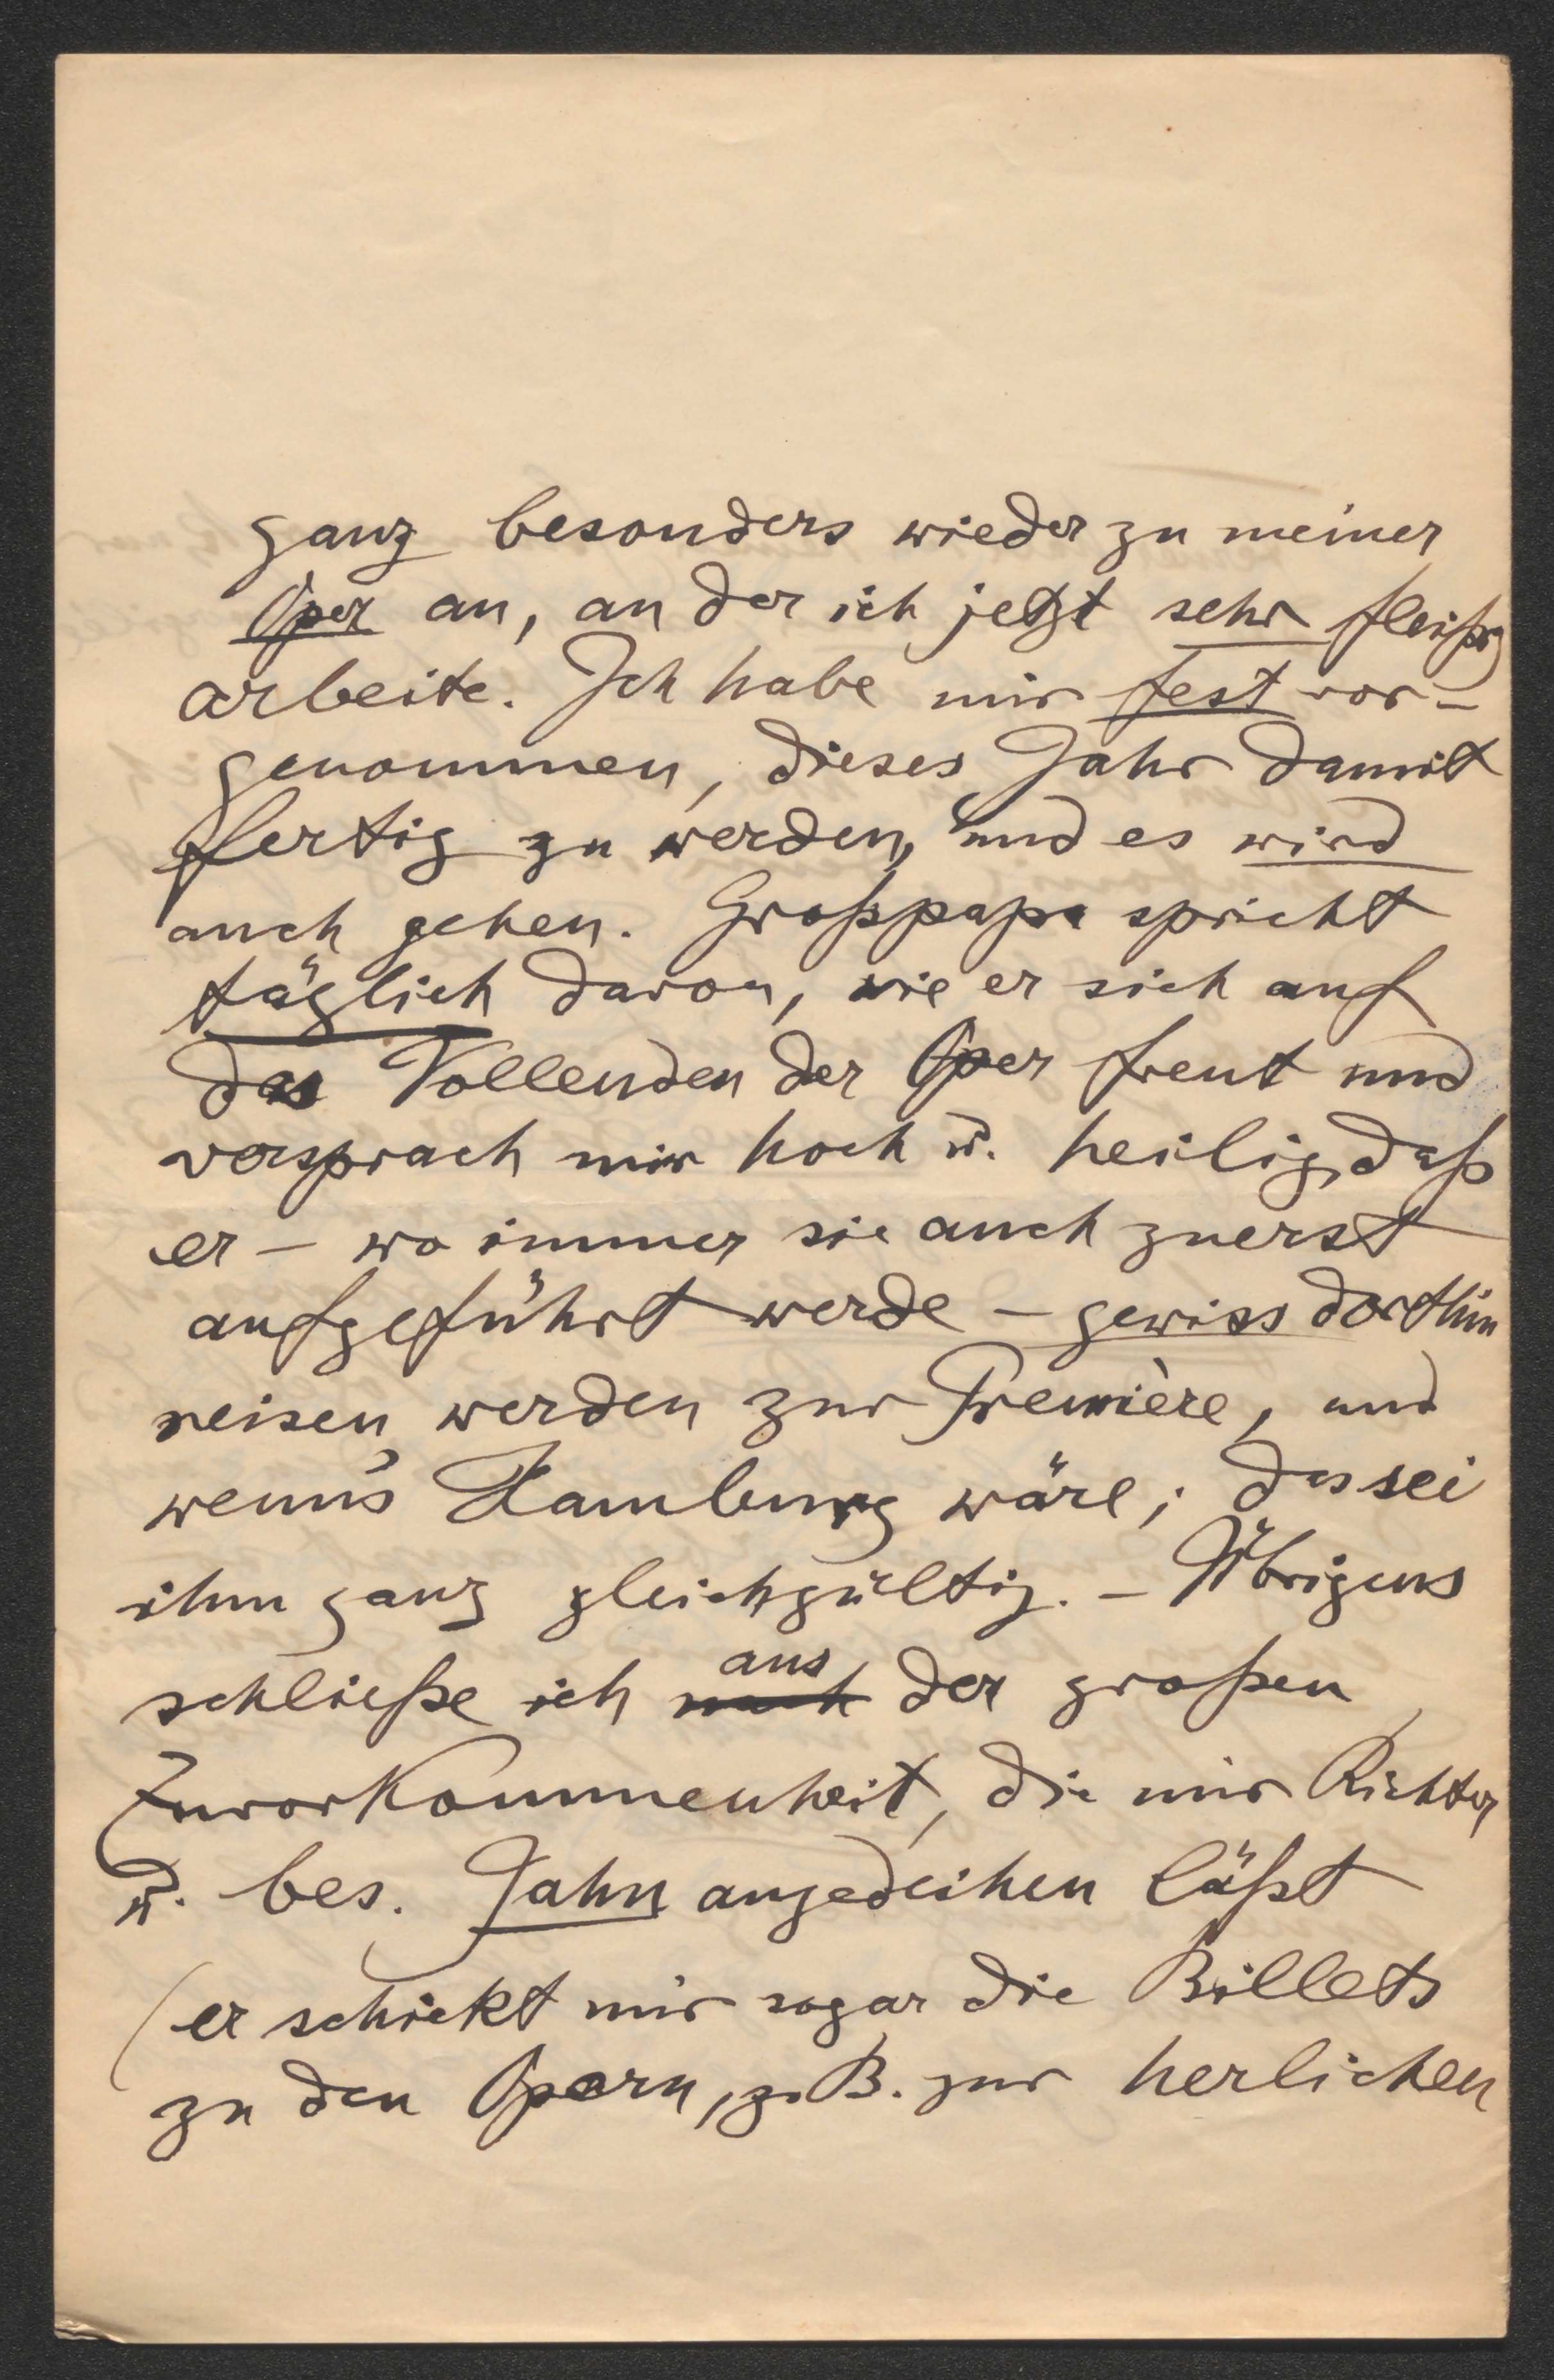 ganz besonders wieder zu meiner
Oper an, an der ich jetzt sehr fleißig
arbeite. Ich habe mir fest vor-
genommen, dieses Jahr damit
fertig zu werden, und es wird
auch gehen. Großpapa spricht
täglich davon, wie er sich auf
das Vollenden der Oper freut und
versprach mir hoch u. heilig, daß
er – wo immer sie auch zuerst
aufgeführt werde – gewiss dorthin
reisen werden zur Première, und
wenn's Hamburg wäre; das sei
ihm ganz gleichgültig. – Übrigens
schließe ich nach aus der großen
Zuvorkommenheit, die mir Richter
u. bes. Jahn angedeihen läßt
(er schickt mir sogar die Billets
zu den Opern, z. B. zur herlichen